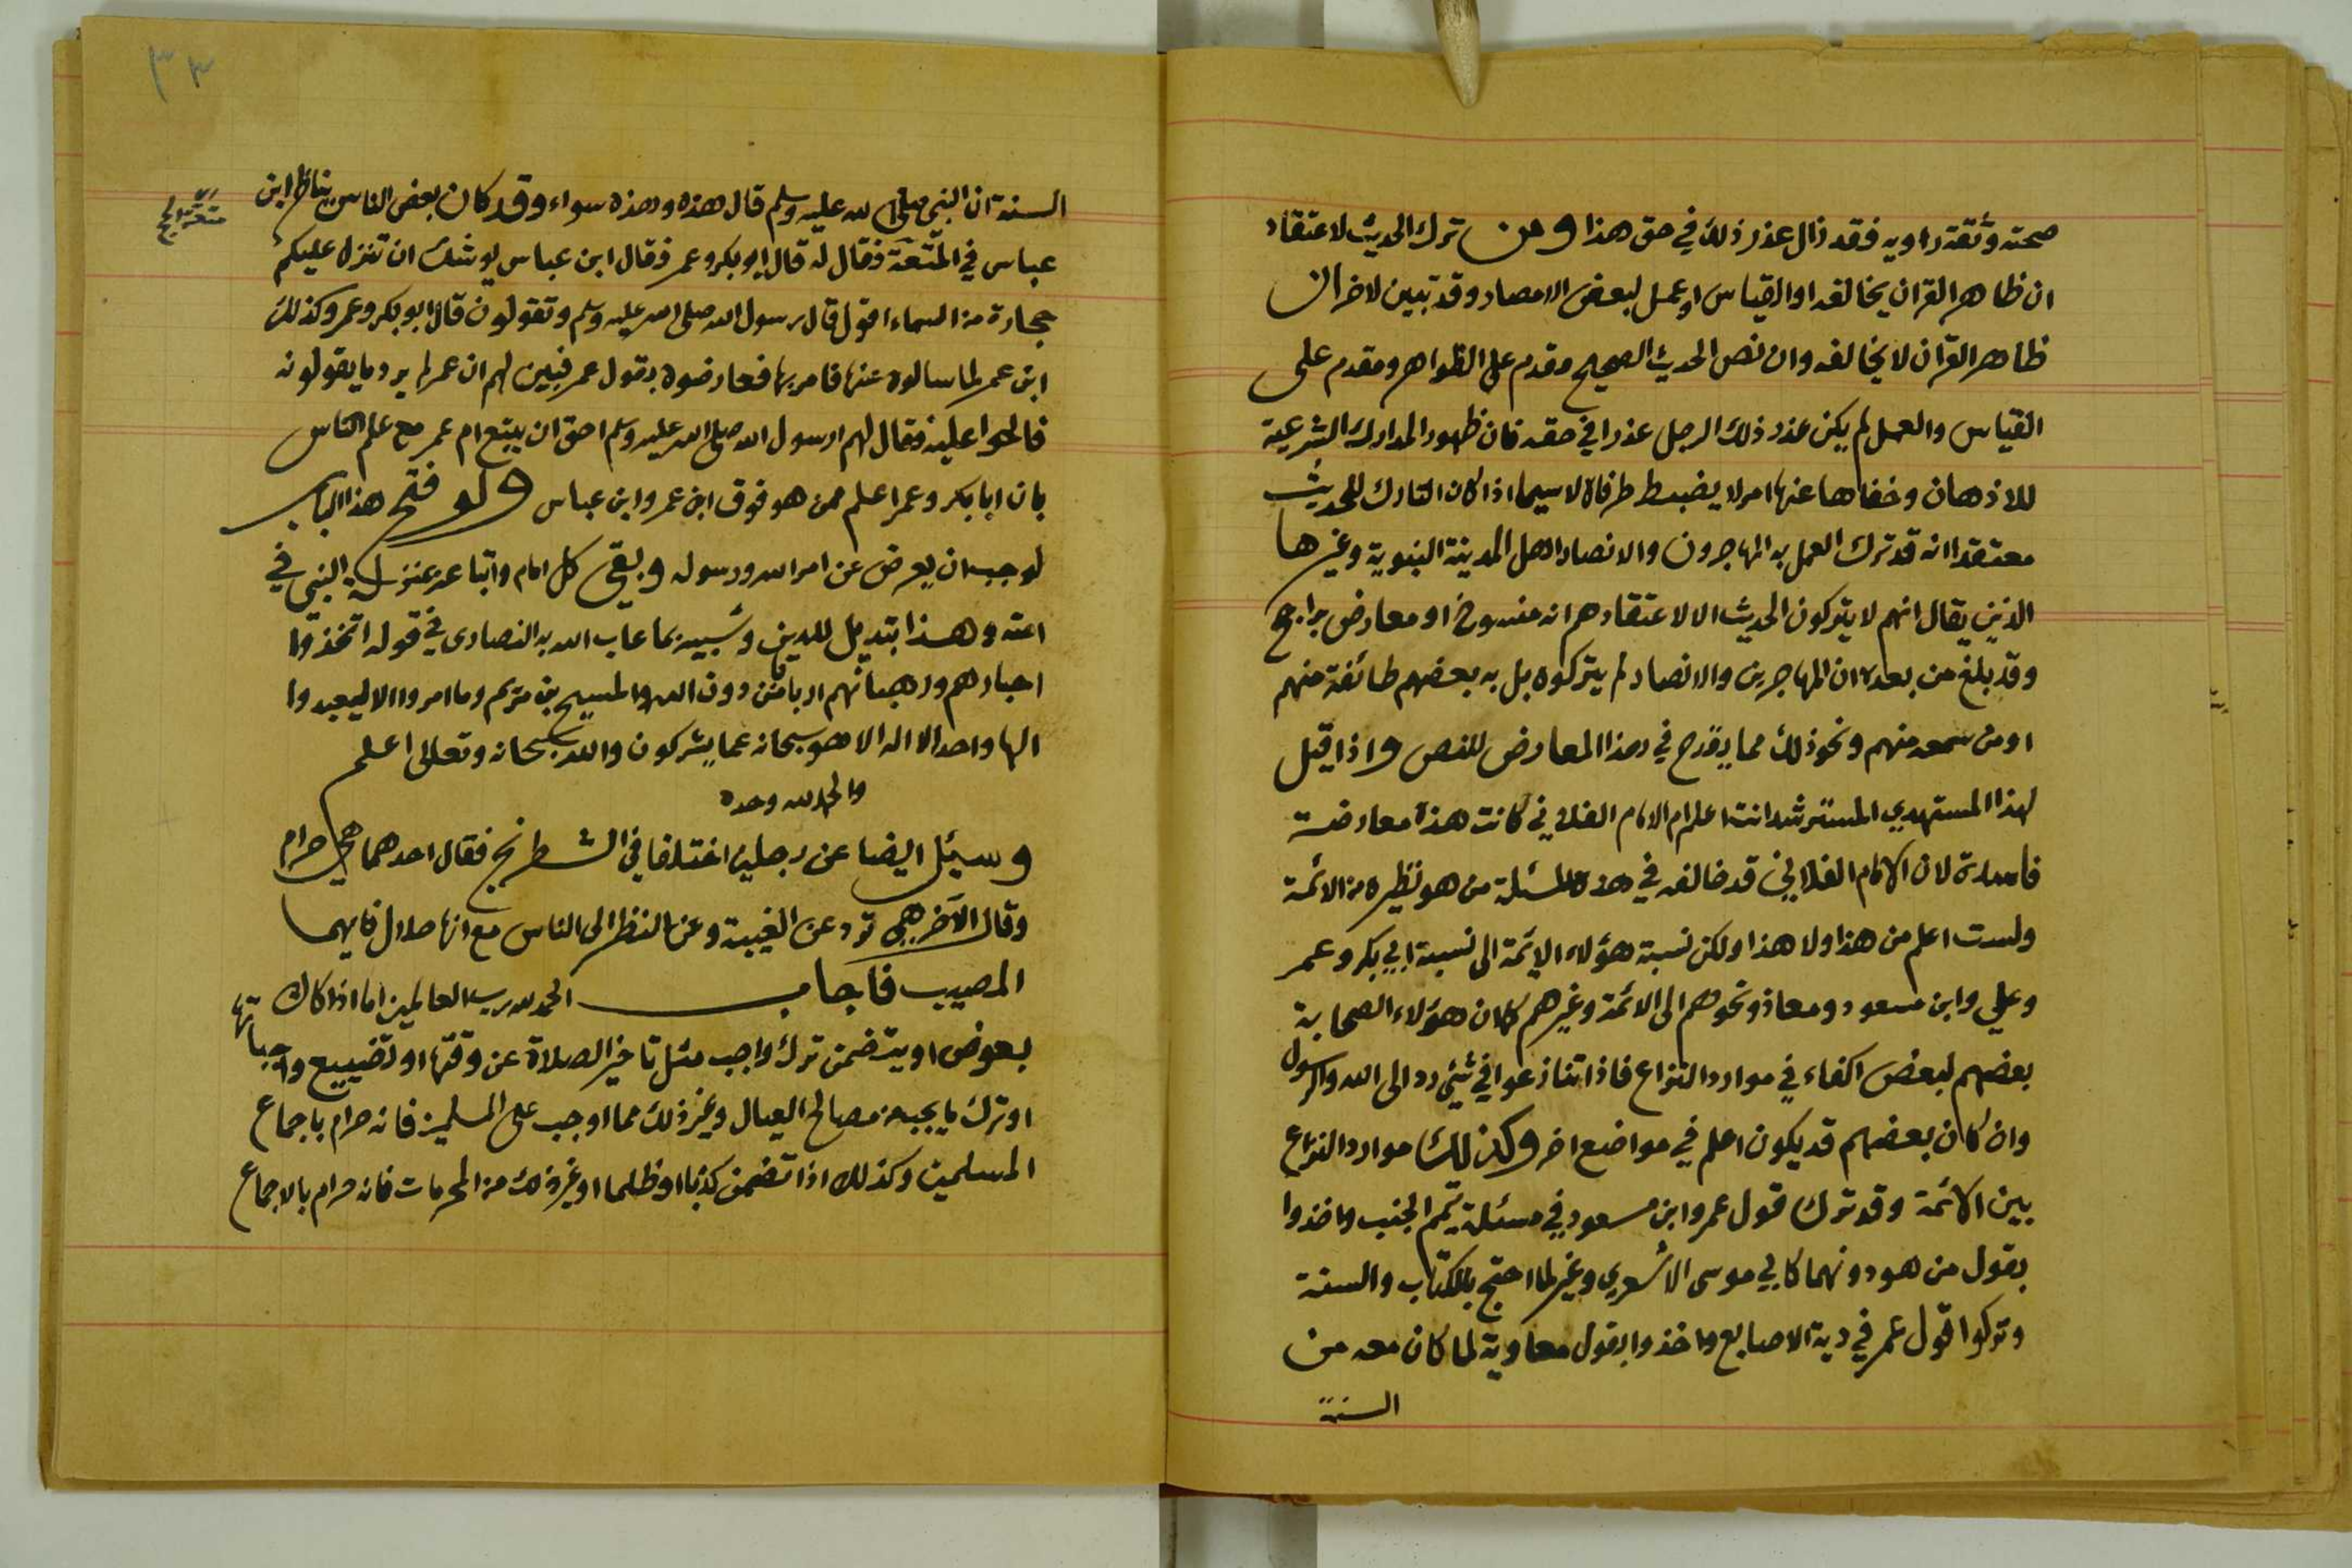 صحته وثقة راويه فقد زال عذر ذلك في حق هذا ومن ترك الحديث لاعتقاد
ان ظاهر القران يخالفه او القياس او عمل لبعض الامصار وقد تبين لاخر ان
ظاهر القرآن لا يخالفه وان نص الحديث الصحيح مقدم على الظواهر ومقدم على
القياس والعمل لم يكن عذر ذلك الرجل عذرا في حقه فان ظهور المدارك الشرعية
للاذهان وخفاها عنها امر لا يضبط طرفاه لا سيما اذا كان التارك للحديث
معتقدا انه قد ترك العمل به المهاجرون والانصار اهل المدينة النبوية وغيرها
الذين يقال انهم لا يتركون الحديث الا لاعتقادهم انه منسوخ او معارض براجح
وقد بلغ من بعده ان المهاجرين والانصار لم يتركوه بل به بعضهم طائفة منهم
او من سمعه منهم ونحو ذلك مما يقدح في هذا المعارض للنص واذا قيل
لهذا المستهدي المسترشد انت اعلم ام الامام الفلاني كانت هذه معارضة
فاسدة لان الامام الفلاني قد خالفه في هذه المسئلة من هو نظيره من الائمة
ولست اعلم من هذا ولا هذا ولكن نسبة هؤلاء الائمة الى نسبة ابي بكر وعمر
وعلي وابن مسعود ومعاذ ونحوهم الى الائمة وغيرهم كما ان هؤلاء الصحابة
بعضهم لبعض اكفاء في موارد النزاع فاذا تنازعوا في شيئ رد الى الله والرسول
وان كان بعضهم قد يكون اعلم في مواضع اخر وكذلك موارد النزاع
بين الائمة وقد ترك قول عمر وابن مسعود في مسئلة تيمم الجنب واخذوا
بقول من هو دونهما كابي موسى الاشعري وغيره لما احتج بالكتاب والسنة
وتركوا قول عمر في دية الاصابع واخذوا بقول معاوية لما كان معه من
السنة
٣٢
السنة ان النبي صلى الله عليه وسلم قال هذه وهذه سواء وقد كان بعض الناس يناظر ابن
متعة الحج
عباس في المتعة فقال له قال ابو بكر وعمر فقال ابن عباس يوشك ان تنزل عليكم
حجارة من السماء اقول قال رسول الله صلى الله عليه وسلم وتقولون قال ابو بكر وعمر وكذلك
ابن عمر لما سالوه عنها فامر بها فعارضوه بقول عمر فبين لهم ان عمر لم يرد ما يقولونه
فالحوا عليه فقال لهم ارسول الله صلى الله عليه وسلم احق ان يتبع ام عمر مع علم الناس
بان ابا بكر وعمر اعلم ممن هو فوق ابن عمر وابن عباس ولو فتح هذا الباب
لوجب ان يعرض عن امر الله ورسوله ويبقى كل امام واتباعه بمنزلة النبي في
امته وهذا تبديل للدين وشبيه بما عاب الله به النصارى في قوله اتخذوا
احبارهم ورهبانهم اربابا من دون الله والمسيح بن مريم وما امروا الا ليعبدوا
الها واحدا لا اله الا هو سبحانه عما يشركون والله سبحانه وتعالى اعلم
والحمد لله وحده
وسيئل ايضا عن رجلين اختلفا في الشطرنج فقال احدهما هي حرام
وقال الآخر هي ترد عن الغيبة وعن النظر الى الناس مع انها حلال فايهما
المصيب فاجاب الحمد لله رب العالمين اما اذا كان
بعوض او يتضمن ترك واجب مثل تاخير الصلاة عن وقتها او تضييع واجباتها
او ترك ما يجب من مصالح العيال وغير ذلك مما اوجب على المسلمين فانه حرام باجماع
المسلمين وكذلك اذا تضمن كذبا او ظلما او غير ذلك من المحرمات فانه حرام بالاجماع